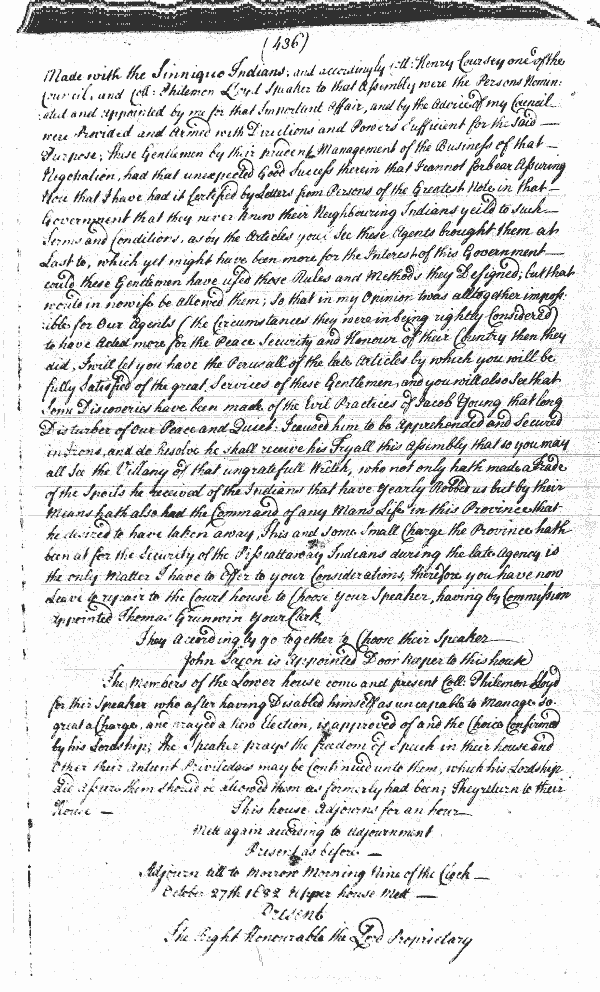 (436)
Made with the Sinnique Indians; and accordingly Coll: Henry Coursey one of the
Councill, and Coll: Philemon Lloyd Speaker to that Assembly were the Persons Nomin-
ated and appointed by me for that Important Affair, and by the Advice of my Council
were Provided and Armed with Directions and Powers Sufficient for the Said
Purpose; these Gentlemen by their prudent Management of the Business of that
Negotiation, had that unexpected Good Success therein that I cannot forbear Assuring
You that I have had it Certified by Letters from Persons of the Greatest Note in that
Government that they never knew their Neighbouring Indians yeild to such
Terms and Conditions, as by the Articles you'l See these Agents brought them at
Last to, which yet might have been more for the Interest of this Government
could these Gentlemen have used those Rules and Methods they Designed; but that
would in nowise be allowed them; So that in my Opinion twas altogether imposs-
ible for Our Agents (the Circumstances they were in being rightly Considered)
to have Acted more for the Peace Security and Honour of their Country then they
did, I will let you have the Perusall of the late Articles by which you will be
fully Satisfied of the great Services of these Gentlemen, and you will also See that
Some Discoveries have been made of the Evil Practices of Jacob Young that long
Disturber of Our Peace and Quiet: I caused him to be Apprehended and Secured
in Irons, and do Resolve he shall receive his Tryall this Assembly that so you may
all See the Villany of that ungratefull Wretch, who not only hath made a Trade
of the Spoils he received of the Indians that have Yearly Robbed us but by their
Means hath also had the Command of any Mans Life in this Province that
he desired to have taken away, This and some Small Charge the Province hath
been at for the Security of the Piscattaway Indians during the late Agency is
the only Matter I have to Offer to your Considerations, therefore you have now
Leave to repair to the Court house to Choose your Speaker, having by Commission
appointed Thomas Grunwin your Clerk
They Accordingly go together to Choose their Speaker
John Saxon is appointed Door keeper to this house
The Members of the Lower house come and present Coll: Philemon Lloyd
for their Speaker who after having Disabled himself as uncapable to Manage So
great a Charge, and prayed a New Election, is approved of and the Choice Confirmed
by his Lordship; The Speaker prays the freedom of Speech in their house and
Other their Antient Priviledges may be Continued unto them, which his Lordship
did assure them should be allowed them as formerly had been; They return to their
House — This house Adjourns for an hour
Mett again according to Adjournment
Present as before —
Adjourn till to Morrow Morning Nine of the Clock —
October 27th 1682 Upper house Mett —
Present
The Right Honourable the Lord Proprietary